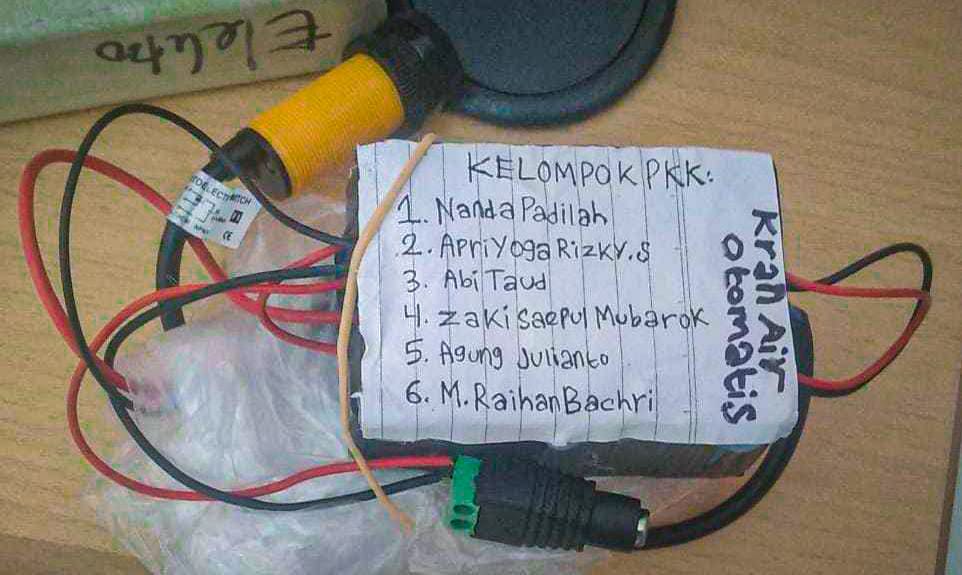 Elektro
KELOMPOK PKK:
1. Nanda Padilah
2. Apri Yoga Rizky.S
3. Abi Taud
4. Zaki Saepul Mubarok
5. Agung Julianto
6. M. Raihan Bachri
Kran Air
Otomatis
CE